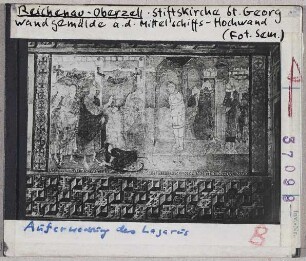 Reichenau-Oberzell. Stiftskirche St. Georg
Wandgemälde a.d. Mittelschiffs-Hochwand
(Fot. Sem.)
37098
Auferweckung des Lazarus
B